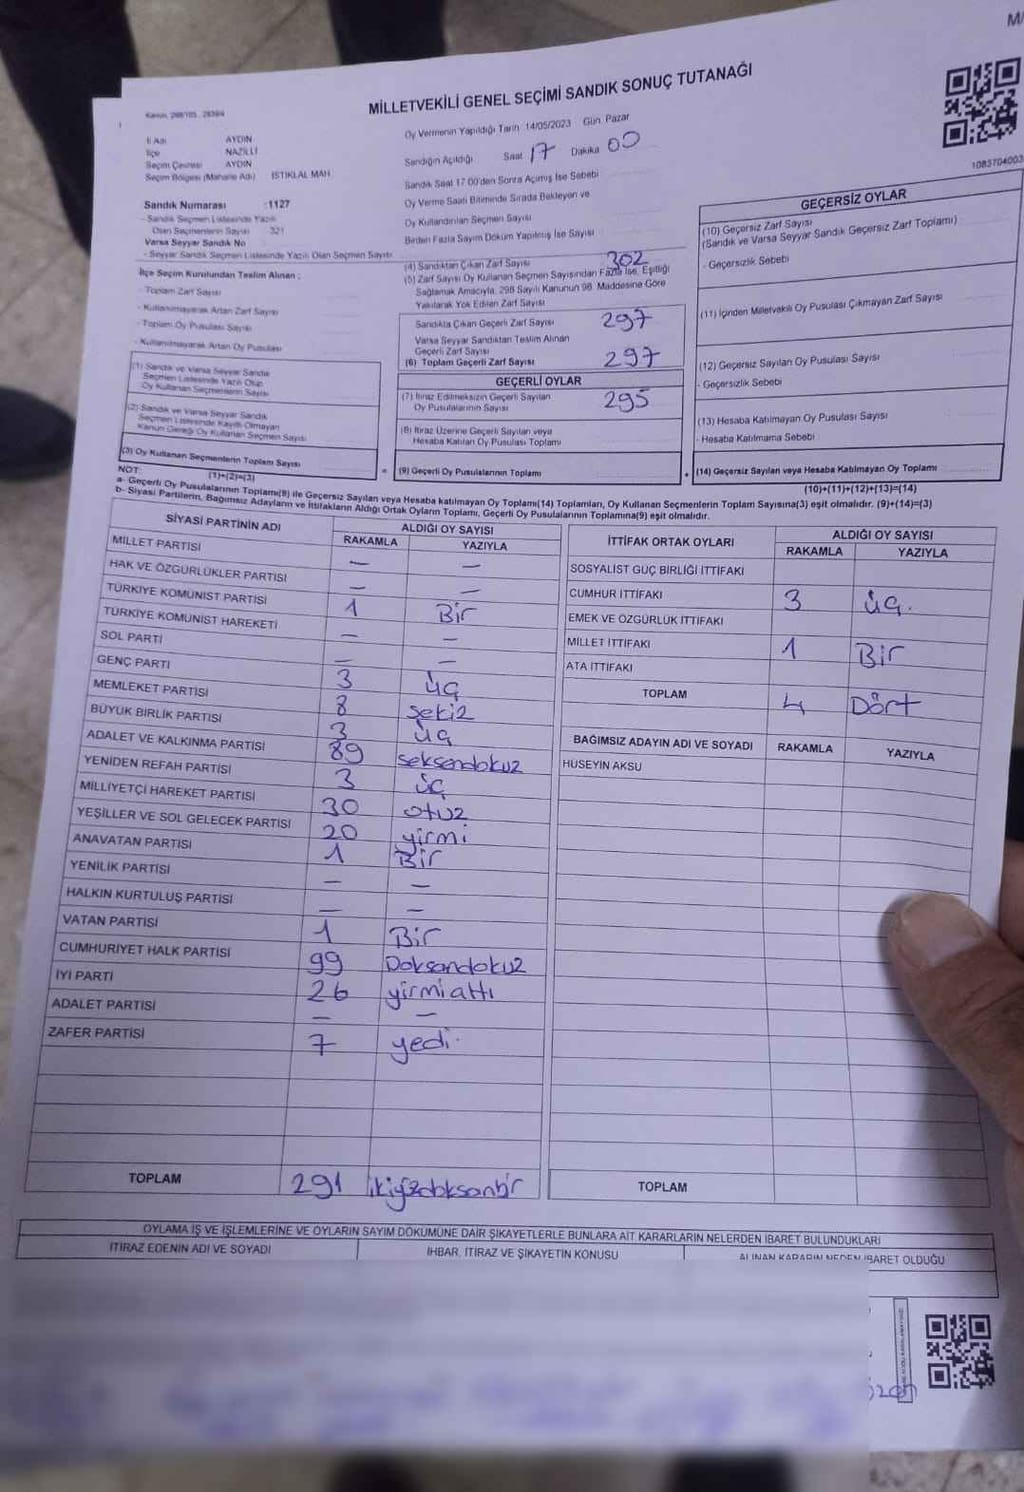 MİLLETVEKİLİ GENEL SEÇİMİ SANDIK SONUÇ TUTANAĞI
İl Adı AYDIN
İlçe NAZİLLİ
Seçim Çevresi AYDIN
Seçim Bölgesi (Mahalle Adı) İSTİKLAL MAH.
Sandık Numarası :1127
- Sandık Seçmen Listesinde Yazılı
Olan Seçmenlerin Sayısı 321
Varsa Seyyar Sandık No
- Seyyar Sandık Seçmen Listesinde Yazılı Olan Seçmen Sayısı
İlçe Seçim Kurulundan Teslim Alınan ;
- Toplam Zarf Sayısı
- Kullanılmayarak Artan Zarf Sayısı
- Toplam Oy Pusulası Sayısı
- Kullanılmayarak Artan Oy Pusulası
(1) Sandık ve Varsa Seyyar Sandık
Seçmen Listesinde Yazılı Olup
Oy Kullanan Seçmenlerin Sayısı
(2) Sandık ve Varsa Seyyar Sandık
Seçmen Listesinde Kayıtlı Olmayan
Kanun Gereği Oy Kullanan Seçmen Sayısı
(3) Oy Kullanan Seçmenlerin Toplam Sayısı
(1)+(2)=(3)
Oy Vermenin Yapıldığı Tarih 14/05/2023 Gün Pazar
Sandığın Açıldığı Saat 17 Dakika 00
Sandık Saat 17.00'den Sonra Açılmış İse Sebebi
Oy Verme Saati Bitiminde Sırada Bekleyen ve
Oy Kullandırılan Seçmen Sayısı
Birden Fazla Sayım Döküm Yapılmış İse Sayısı
(4) Sandıktan Çıkan Zarf Sayısı 302
(5) Zarf Sayısı Oy Kullanan Seçmen Sayısından Fazla İse, Eşitliği
Sağlamak Amacıyla, 298 Sayılı Kanunun 98. Maddesine Göre
Yakılarak Yok Edilen Zarf Sayısı
Sandıkta Çıkan Geçerli Zarf Sayısı 297
Varsa Seyyar Sandıktan Teslim Alınan
Geçerli Zarf Sayısı
(6) Toplam Geçerli Zarf Sayısı 297
GEÇERLİ OYLAR
(7) İtiraz Edilmeksizin Geçerli Sayılan
Oy Pusulalarının Sayısı 295
(8) İtiraz Üzerine Geçerli Sayılan veya
Hesaba Katılan Oy Pusulası Toplamı
(9) Geçerli Oy Pusulalarının Toplamı
1083704003
GEÇERSİZ OYLAR
(10) Geçersiz Zarf Sayısı
(Sandık ve Varsa Seyyar Sandık Geçersiz Zarf Toplamı)
- Geçersizlik Sebebi
(11) İçinden Milletvekili Oy Pusulası Çıkmayan Zarf Sayısı
(12) Geçersiz Sayılan Oy Pusulası Sayısı
- Geçersizlik Sebebi
(13) Hesaba Katılmayan Oy Pusulası Sayısı
- Hesaba Katılmama Sebebi
(14) Geçersiz Sayılan veya Hesaba Katılmayan Oy Toplamı
(10)+(11)+(12)+(13)=(14)
NOT:
a- Geçerli Oy Pusulalarının Toplamı(9) ile Geçersiz Sayılan veya Hesaba katılmayan Oy Toplamı(14) Toplamları, Oy Kullanan Seçmenlerin Toplam Sayısına(3) eşit olmalıdır. (9)+(14)=(3)
b- Siyasi Partilerin, Bağımsız Adayların ve İttifakların Aldığı Ortak Oyların Toplamı, Geçerli Oy Pusulalarının Toplamına(9) eşit olmalıdır.
SİYASİ PARTİNİN ADI ALDIĞI OY SAYISI
RAKAMLA YAZIYLA
MİLLET PARTİSİ — —
HAK VE ÖZGÜRLÜKLER PARTİSİ — —
TÜRKİYE KOMÜNİST PARTİSİ 1 Bir
TÜRKİYE KOMÜNİST HAREKETİ — —
SOL PARTİ — —
GENÇ PARTİ 3 üç
MEMLEKET PARTİSİ 8 sekiz
BÜYÜK BİRLİK PARTİSİ 3 üç
ADALET VE KALKINMA PARTİSİ 89 seksendokuz
YENİDEN REFAH PARTİSİ 3 üç
MİLLİYETÇİ HAREKET PARTİSİ 30 otuz
YEŞİLLER VE SOL GELECEK PARTİSİ 20 yirmi
ANAVATAN PARTİSİ 1 Bir
YENİLİK PARTİSİ — —
HALKIN KURTULUŞ PARTİSİ — —
VATAN PARTİSİ 1 Bir
CUMHURİYET HALK PARTİSİ 99 Doksandokuz
İYİ PARTİ 26 yirmialtı
ADALET PARTİSİ — —
ZAFER PARTİSİ 7 yedi.
TOPLAM 291 ikiyüzdoksanbir
İTTİFAK ORTAK OYLARI ALDIĞI OY SAYISI
RAKAMLA YAZIYLA
SOSYALİST GÜÇ BİRLİĞİ İTTİFAKI
CUMHUR İTTİFAKI 3 üç.
EMEK VE ÖZGÜRLÜK İTTİFAKI
MİLLET İTTİFAKI 1 Bir
ATA İTTİFAKI
TOPLAM 4 Dört
BAĞIMSIZ ADAYIN ADI VE SOYADI RAKAMLA YAZIYLA
HÜSEYİN AKSU
TOPLAM
OYLAMA İŞ VE İŞLEMLERİNE VE OYLARIN SAYIM DÖKÜMÜNE DAİR ŞİKAYETLERLE BUNLARA AİT KARARLARIN NELERDEN İBARET BULUNDUKLARI
İTİRAZ EDENİN ADI VE SOYADI İHBAR, İTİRAZ VE ŞİKAYETİN KONUSU ALINAN KARARIN NEDEN İBARET OLDUĞU